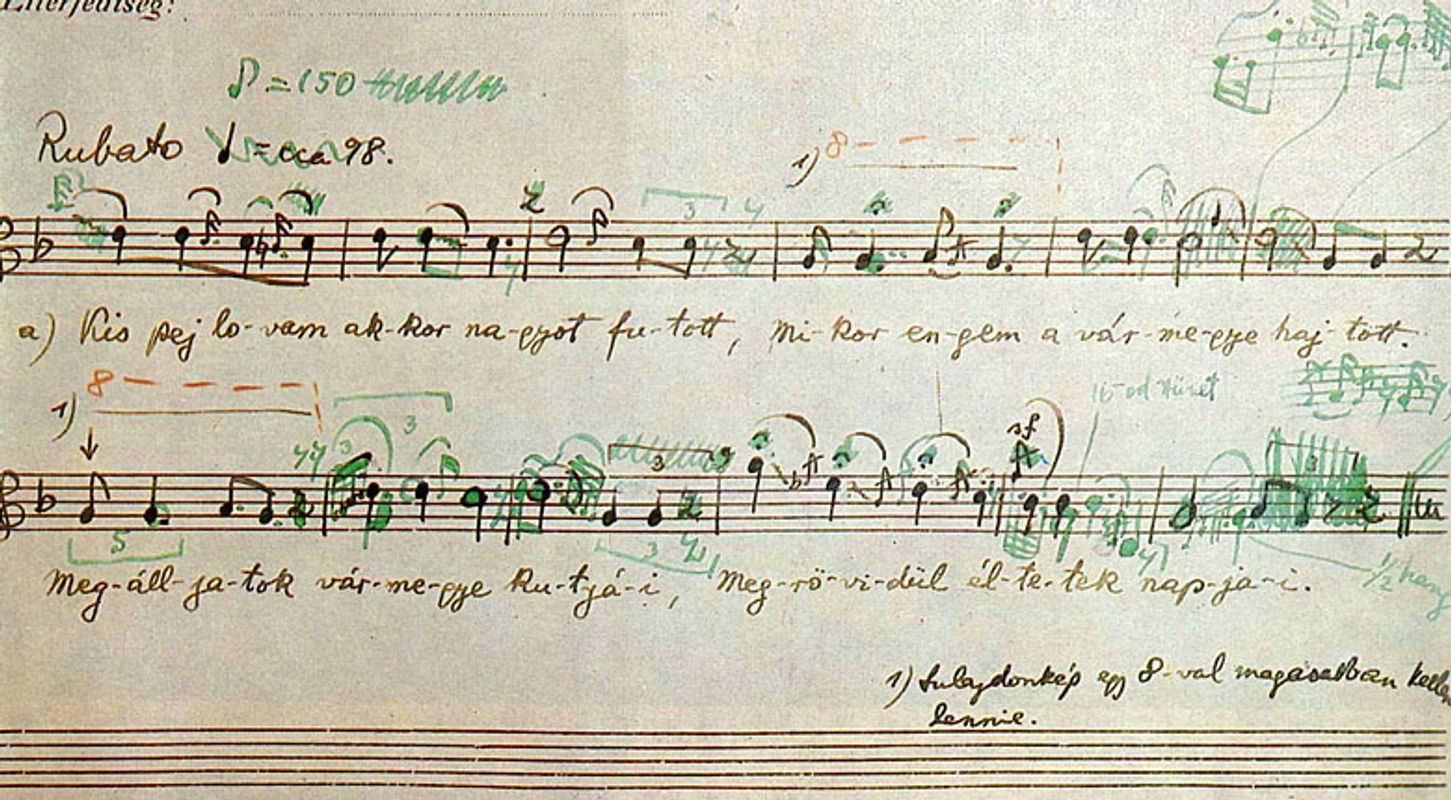 Elterjedtség:
♪=150
Rubato ♩=cca 98.
1) 8
3
a) Kis pej lo-vam ak-kor na-gyot fu-tott, Mi-kor en-gem a vár-me-gye haj-tott.
1) 8
16-od
3 3 3 sf 3
5 3
Meg-áll-ja-tok vár-me-gye ku-tyá-i, Meg-rö-vi-dül él-te-tek nap-ja-i.
1/2 hang
1) Tulajdonkép egy 8-val magasabban
lennie.